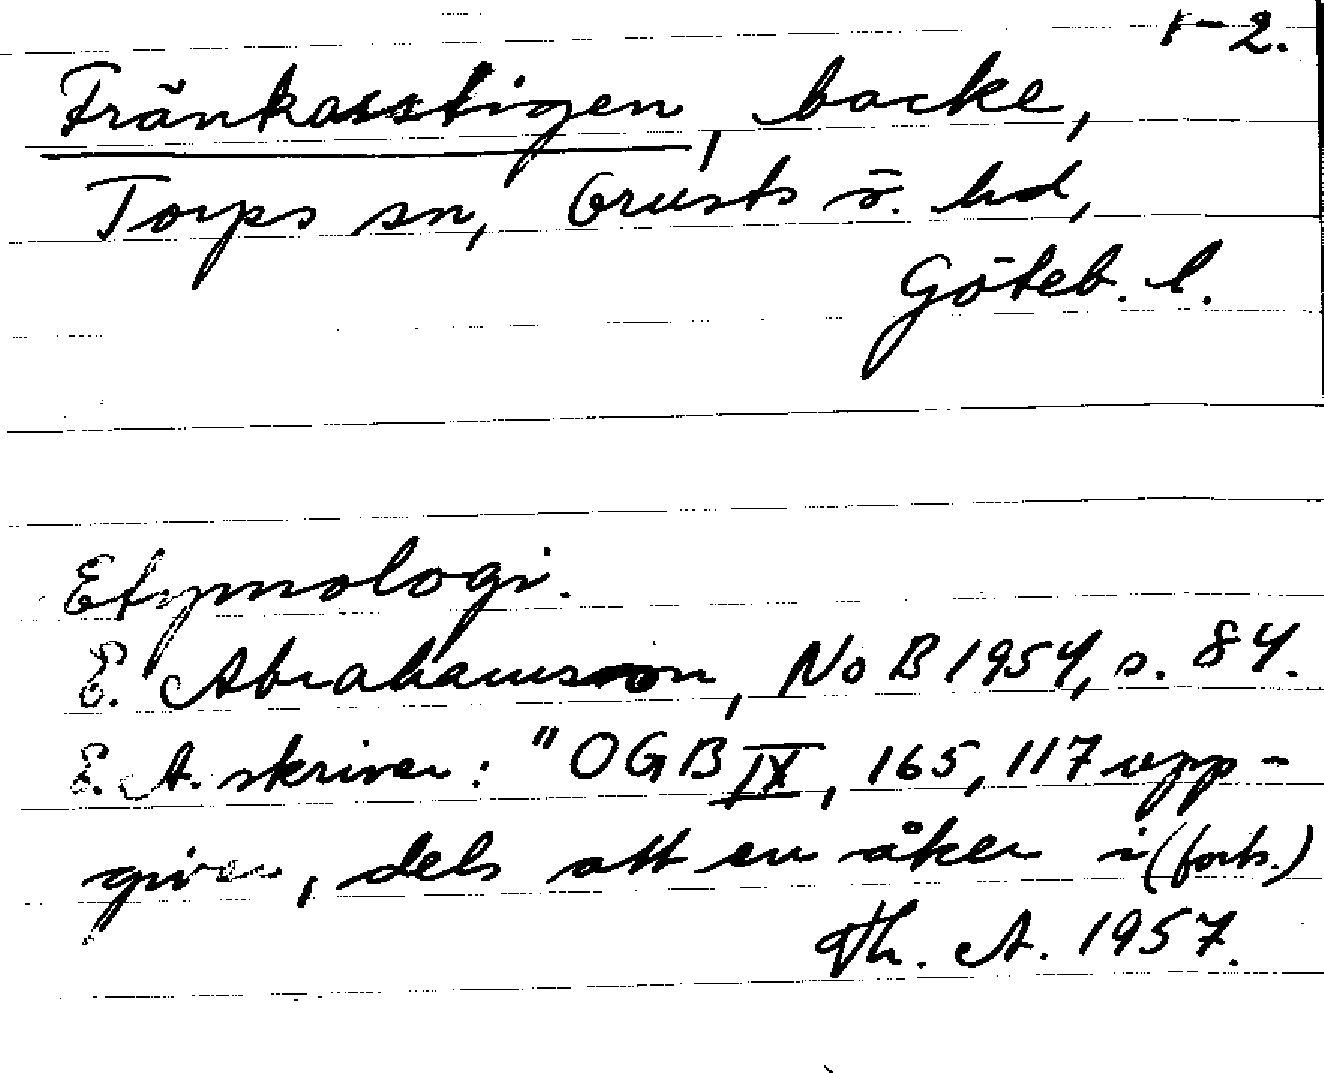 1-2.
Fränkasstigen, backe,
Torps sn, Orusts ö. hd,
Göteb. l.
Etymologi.
E. Abrahamson, NoB 1954, s. 84.
E. A. skriver: "OGB IX, 165, 117 upp-
giver, dels att en åker i (forts.)
Th. A. 1957.